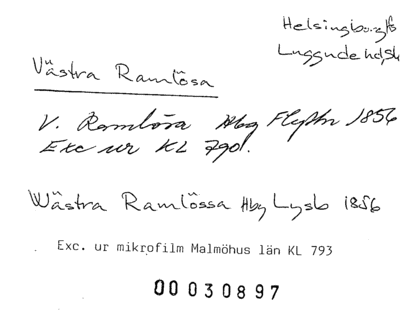 Helsingborgfs
Luggude hd, Sk
Västra Ramlösa
V. Ramlösa Hbg Flyttn 1856
Exc ur KL 790.
Wästra Ramlössa Hbg Lysb 1856
Exc. ur mikrofilm Malmöhus län KL 793
00 030897